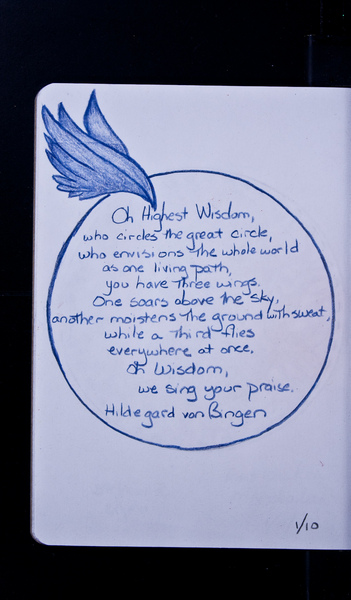 Oh Highest Wisdom,
who circles the great circle,
who envisions the whole world
as one living path,
you have three wings.
One soars above the sky,
another moistens the ground with sweat,
while a third flies
everywhere at once.
Oh Wisdom,
we sing your praise.
Hildegard von Bingen
1/10